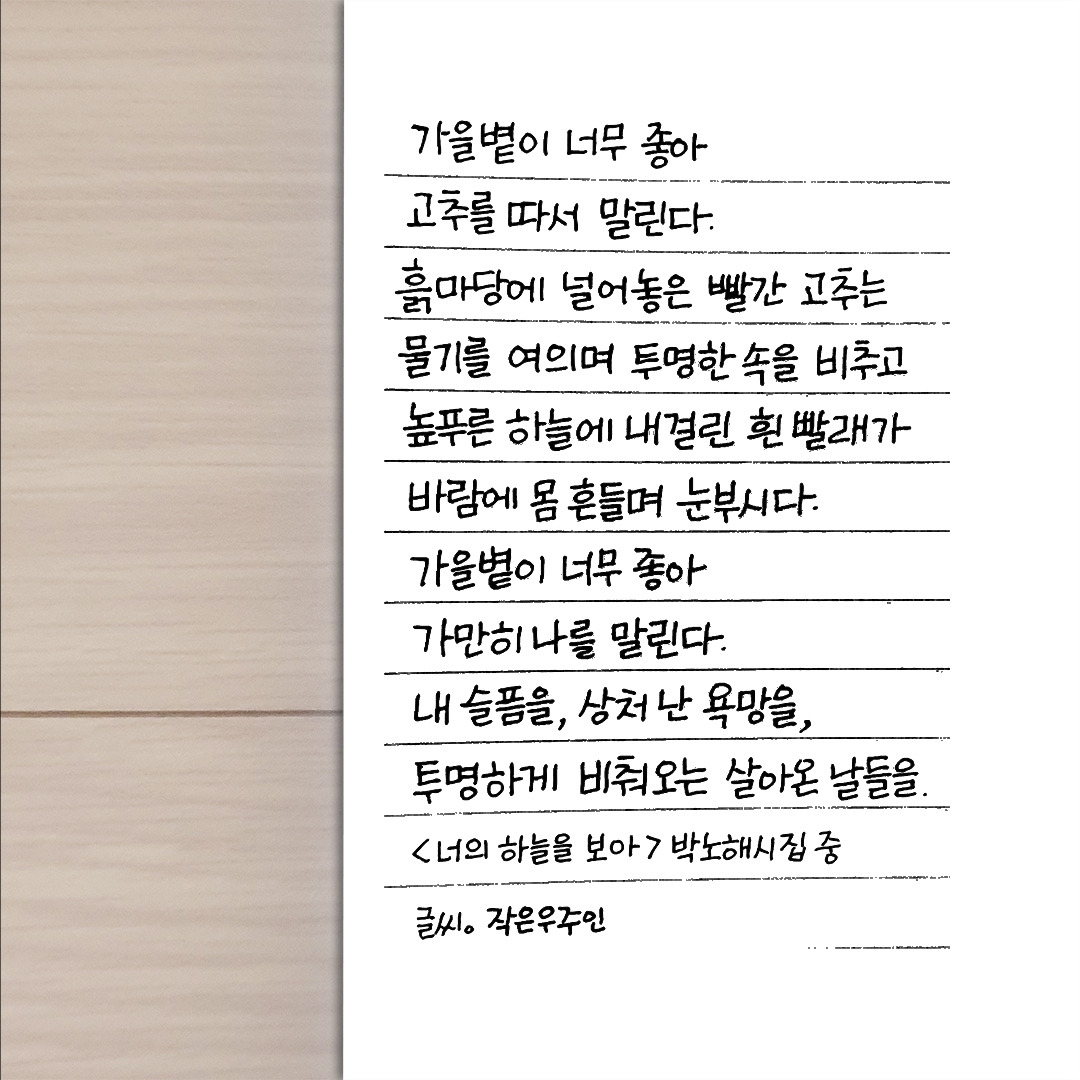 가을볕이 너무 좋아
고추를 따서 말린다.
흙마당에 널어놓은 빨간 고추는
물기를 여의며 투명한 속을 비추고
높푸른 하늘에 내걸린 흰 빨래가
바람에 몸 흔들며 눈부시다.
가을볕이 너무 좋아
가만히 나를 말린다.
내 슬픔을, 상처 난 욕망을,
투명하게 비춰오는 살아온 날들을.
<너의 하늘을 보아> 박노해시집 중
글씨。 작은우주인